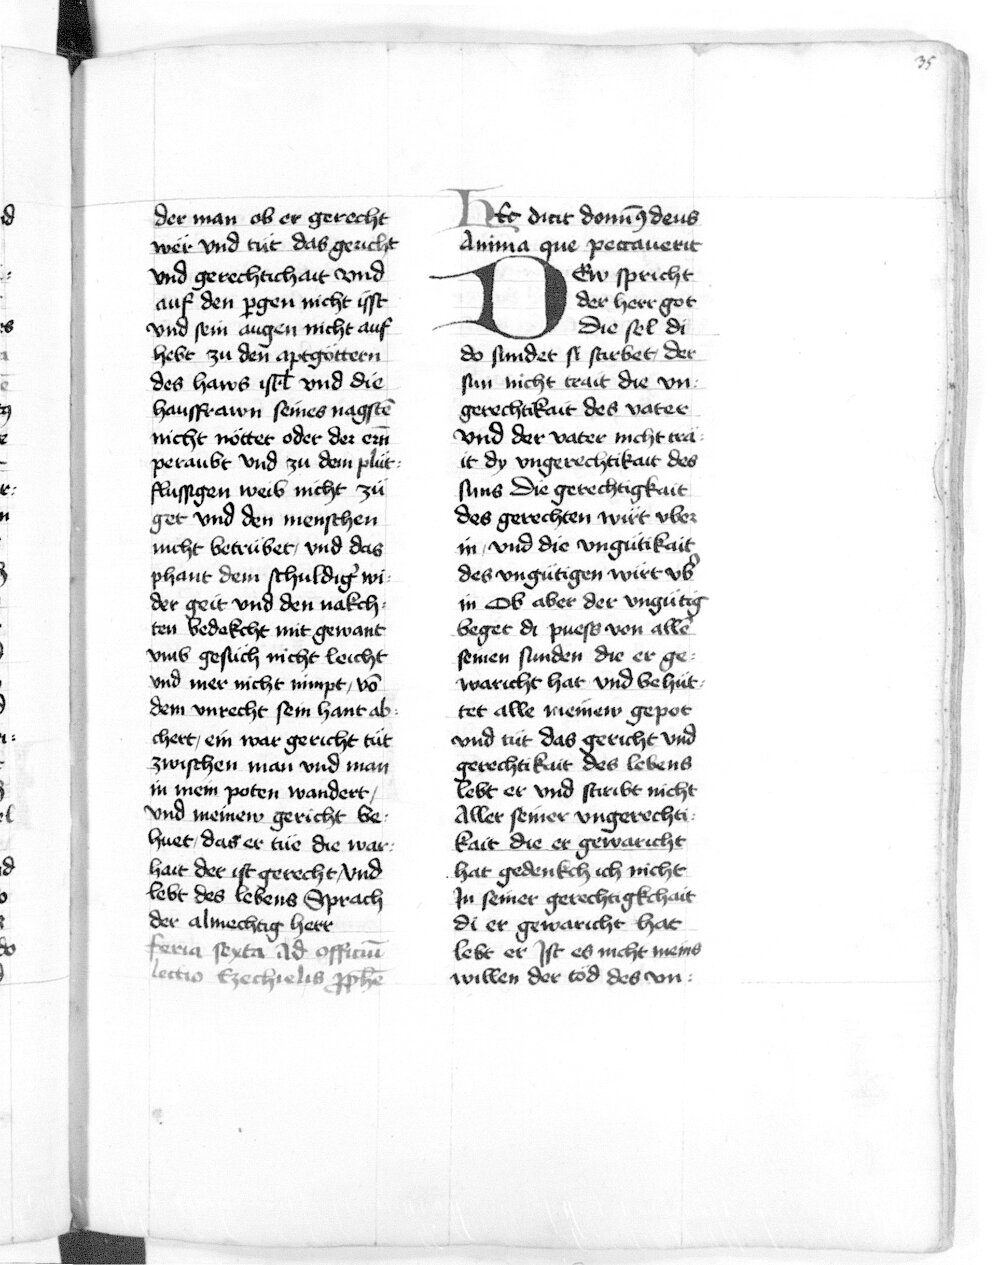 35
der man ob er gerecht
wër vnd tüt das gericht
vnd gerechtichait vnd
auf den pergen nicht ÿsst
vnd sein augen nicht auf
hebt zu den aptgöttern
des haws isrl vnd die
hausfrawn seines nagstē
nicht nöttet oder der ern̄
peraubt vnd zu dem plüt:
flussigen weib nicht zü
get vnd den menschen
nicht betrübet / vnd das
phant dem schuldig̉ wi:
der geit vnd den nakch:
ten bedekcht mit gewant
vmb gesüch nicht leicht
vnd mer nicht nimpt / vō
dem vnrecht sein hant ab:
chert / ein war gericht tüt
zwischen man vnd man
in mein poten wandert /
vnd meinew gericht be:
huet / das er tüe die war:
hait der ist gerecht / vnd
lebt des lebens Sprach
der almechtig herr
feria sexta Ad officiū
lectio Ezechielis ꝓphē
HEc dicit domīꝰ deus
Anima que peccauerit
DEw spricht
der herr got
Die sel di
do sundet si stirbet / der
sun nicht trait die vn:
gerechtikait des vater
vnd der vater nicht tra:
it dy vngerechtikait des
suns Die gerechtigkait
des gerechten wirt vber
in / vnd die vngütikait
des vngütigen wirt vb̉
in Ob aber der vngütig
beget di puess von allē
seinen sunden die er ge:
waricht hat vnd behüt:
tet alle meinew gepot
vnd tüt das gericht vnd
gerechtikait des lebens
lebt er vnd stirbt nicht
Aller seiner vngerechti:
kait die er gewaricht
hat gedenkch ich nicht
In seiner gerechtigkchait
di er gewaricht hat
lebt er Ist es nicht meins
willen der töd des vn: